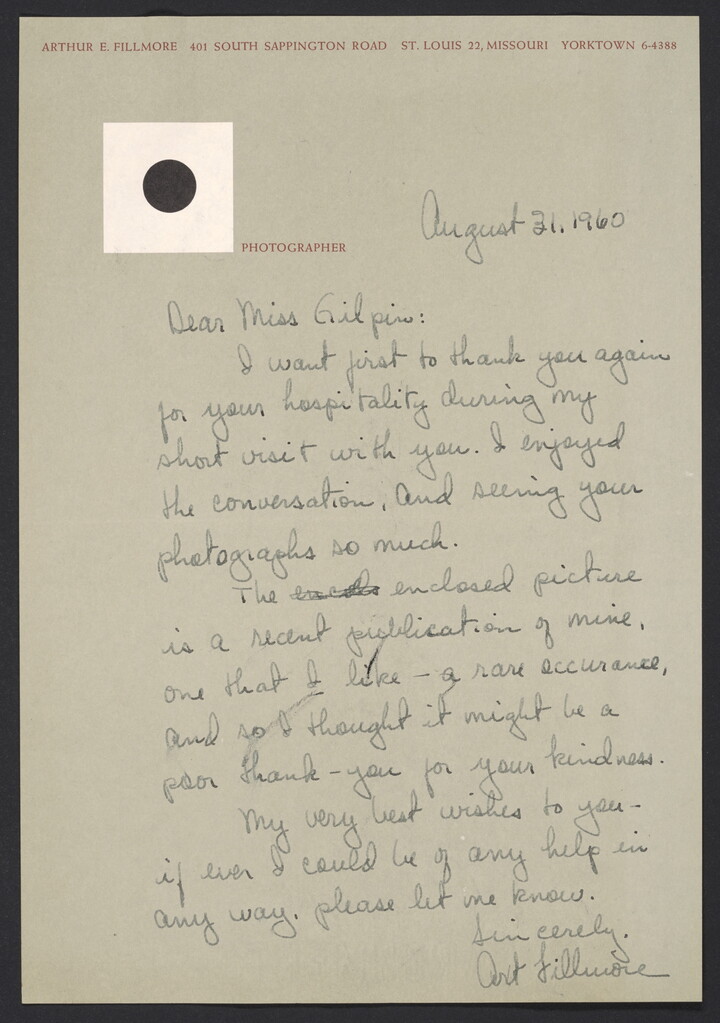 ARTHUR E. FILLMORE 401 SOUTH SAPPINGTON ROAD ST. LOUIS 22, MISSOURI YORKTOWN 6-4388
PHOTOGRAPHER
August 31, 1960
Dear Miss Gilpin:
I want first to thank you again
for your hospitality during my
short visit with you. I enjoyed
the conversation, and seeing your
photographs so much.
The enclosed picture
is a recent publication of mine,
one that I like – a rare occurance,
and so I thought it might be a
poor thank-you for your kindness.
My very best wishes to you –
if ever I could be of any help in
any way, please let me know.
Sincerely,
Art Fillmore